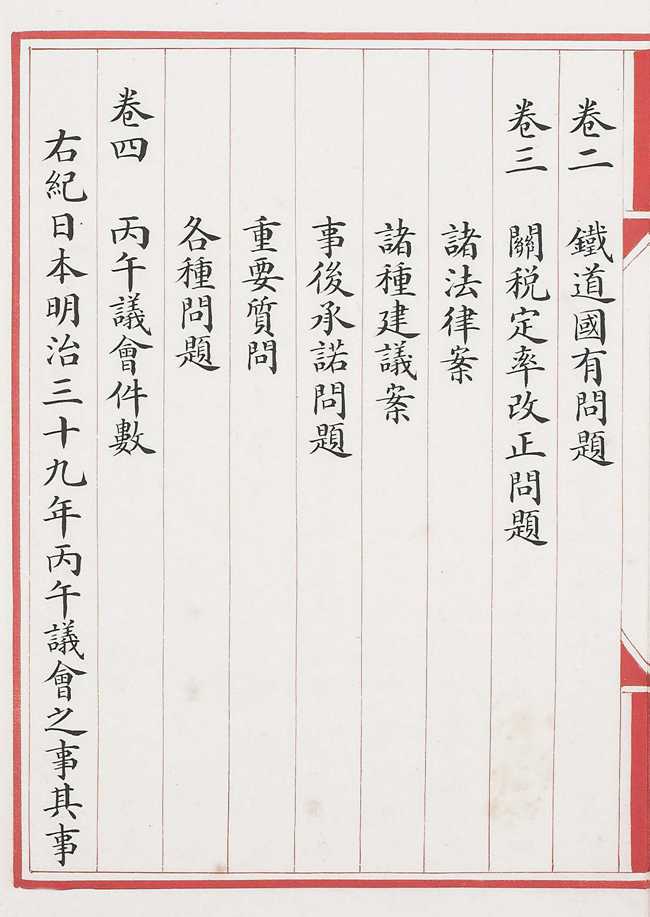 卷二　鐵道國有問題
卷三　關税定率改正問題
諸法律案
諸種建議案
事後承諾問題
重要質問
各種問題
卷四　丙午議會件數
右紀日本明治三十九年丙午議會之事其事